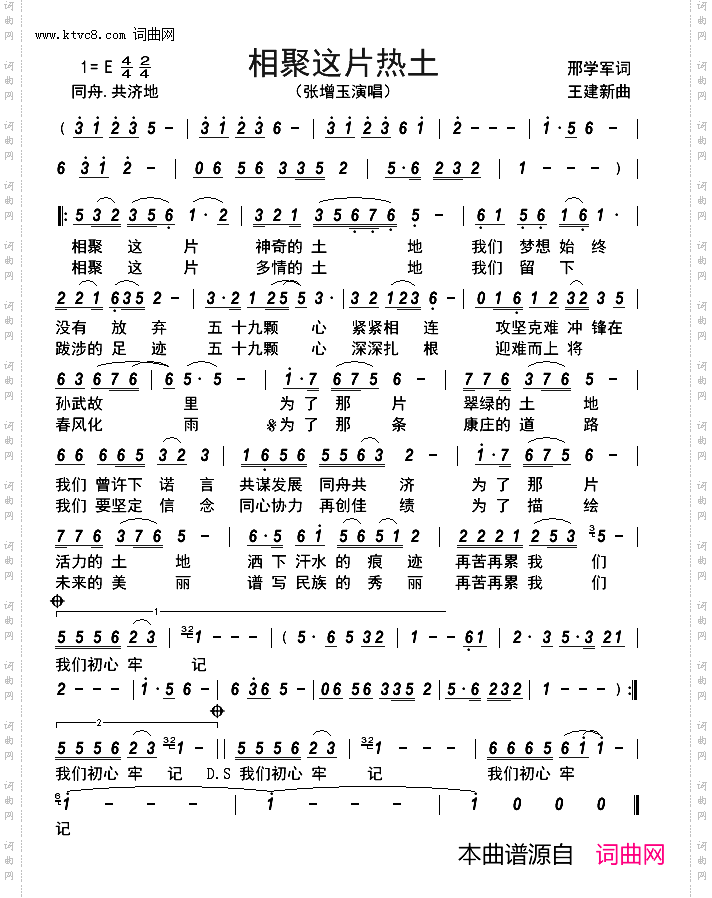 www.ktvc8.com 词曲网
相聚这片热土
1= E 4/4 2/4
邢学军词
同舟.共济地
（张增玉演唱）
王建新曲
( 3 1 2 3 5 - | 3 1 2 3 6 - | 3 1 2 3 6 1 | 2 - - - | 1 · 5 6 - |
6 3 1 2 - | 0 6 5 6 3 3 5 2 | 5 · 6 2 3 2 | 1 - - - ) |
‖: 5 3 2 3 5 6 1 · 2 | 3 2 1 3 5 6 7 6 5 - | 6 1 5 6 1 6 1 |
相聚 这 片 神奇的 土 地 我们 梦想 始 终
相聚 这 片 多情的 土 地 我们 留 下
2 2 1 6 3 5 2 - | 3 · 2 1 2 5 5 3 · | 3 2 1 2 3 6 - | 0 1 6 1 2 3 2 3 5 |
没有 放 弃 五 十九颗 心 紧紧相 连 攻坚克难 冲 锋在
跋涉的 足 迹 五 十九颗 心 深深扎 根 迎难而上 将
6 3 6 7 6 | 6 5 · 5 - | 1 · 7 6 7 5 - | 7 7 6 3 7 6 5 - |
孙武故 里 为 了 那 片 翠绿的 土 地
春风化 雨 ※为 了 那 条 康庄的 道 路
6 6 6 6 5 3 2 3 | 1 6 5 6 5 5 6 3 2 - | 1 · 7 6 7 5 - |
我们 曾许下 诺 言 共谋发展 同舟共 济 为 了 那 片
我们 要坚定 信 念 同心协力 再创佳 绩 为 了 描 绘
7 7 6 3 7 6 5 - | 6 · 5 6 1 5 6 5 1 2 | 2 2 2 1 2 5 3 3 5 - |
活力的 土 地 洒 下 汗水 的 痕 迹 再苦再累 我 们
未来的 美 丽 谱 写 民族 的 秀 丽 再苦再累 我 们
1
5 5 5 6 2 3 | 3 2 1 - - | ( 5 · 6 5 3 2 | 1 - - 6 1 | 2 · 3 5 · 3 2 1 |
我们初心 牢 记
2 - - - | 1 · 5 6 - | 6 3 6 5 - | 0 6 5 6 3 3 5 2 | 5 · 6 2 3 2 | 1 - - - ) :‖
2
5 5 5 6 2 3 3 2 1 - ‖ 5 5 5 6 2 3 | 3 2 1 - - | 6 6 6 5 6 1 1 - |
我们初心 牢 记 D.S 我们初心 牢 记 我们初心 牢
6 1 - - - | 1 - - - | 1 0 0 0 ‖
记
本曲谱源自 词曲网